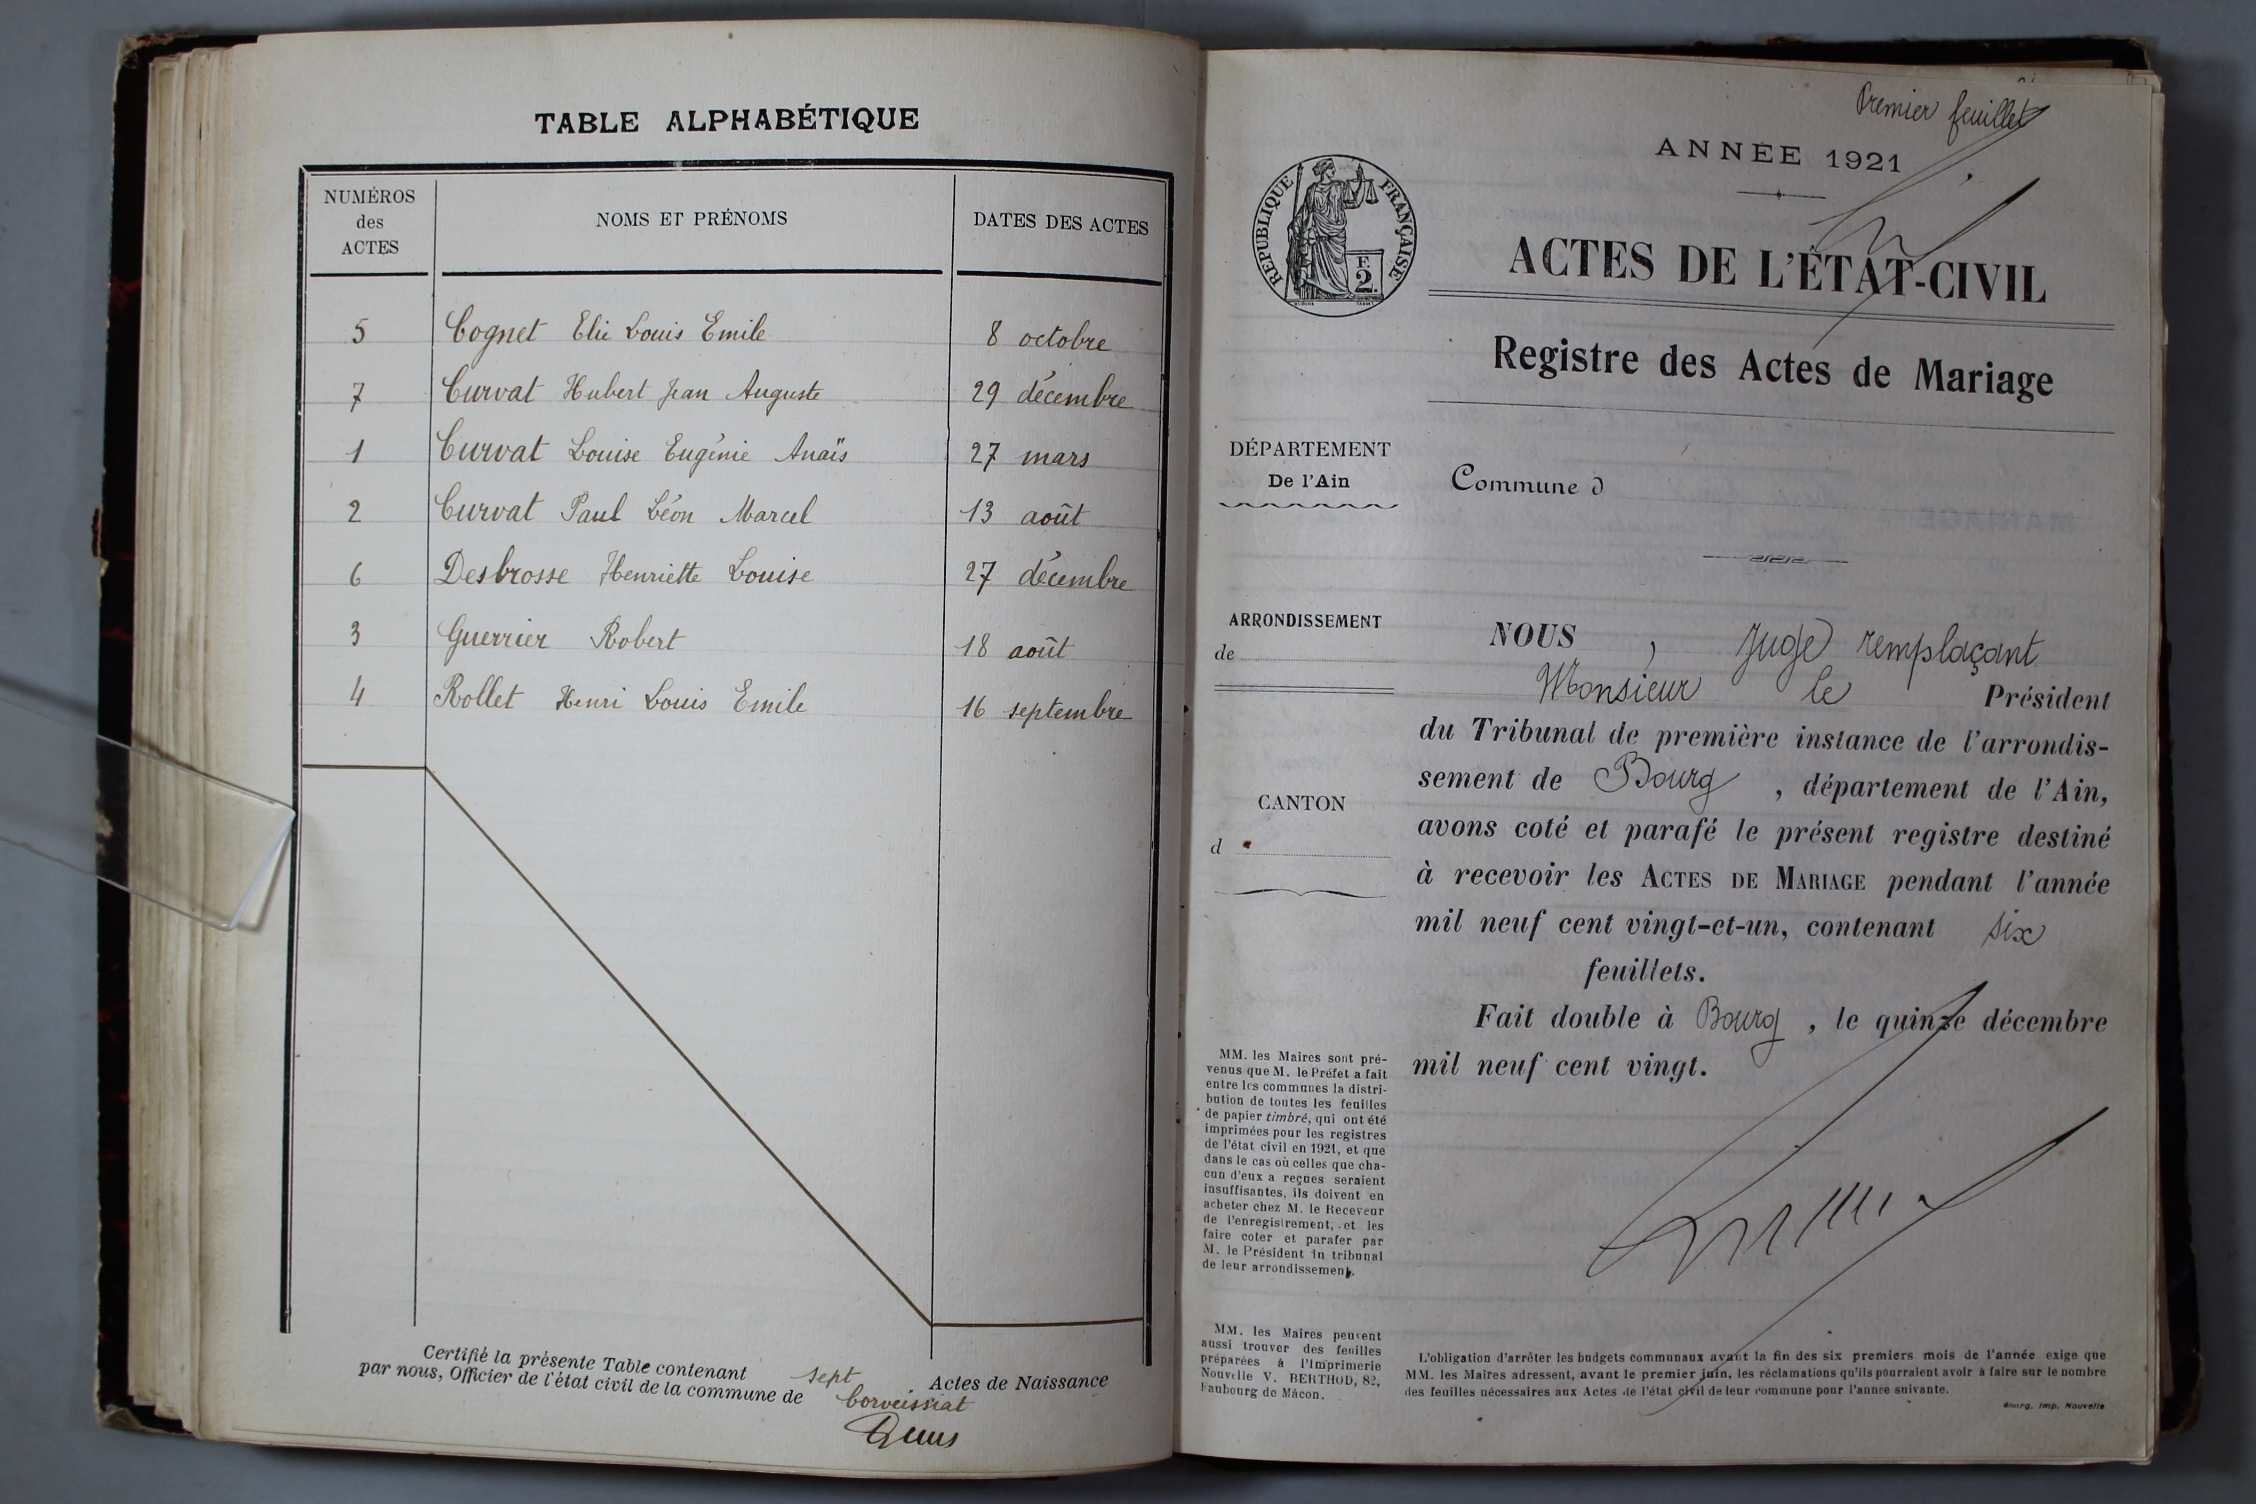 TABLE ALPHABÉTIQUE
NUMÉROS
des
ACTES
NOMS ET PRÉNOMS
DATES DES ACTES
5 Cognet Elie Louis Emile 8 octobre
7 Curvat Hubert Jean Auguste 29 décembre
1 Curvat Louise Eugénie Anaïs 27 mars
2 Curvat Paul Léon Marcel 13 août
6 Desbrosse Henriette Louise 27 décembre
3 Guerrier Robert 18 août
4 Rollet Henri Louis Emile 16 septembre
Certifié la présente Table contenant sept Actes de Naissance
par nous, Officier de l'état civil de la commune de Corveissiat
Premier feuillet
ANNÉE 1921
RÉPUBLIQUE FRANÇAISE
F.
2.
ACTES DE L'ÉTAT-CIVIL
Registre des Actes de Mariage
DÉPARTEMENT
De l'Ain
Commune d
ARRONDISSEMENT
de
CANTON
d
NOUS , Juge remplaçant
Monsieur le Président
du Tribunal de première instance de l'arrondis-
sement de Bourg , département de l'Ain,
avons coté et parafé le présent registre destiné
à recevoir les ACTES DE MARIAGE pendant l'année
mil neuf cent vingt-et-un, contenant six
feuillets.
Fait double à Bourg , le quinze décembre
mil neuf cent vingt.
MM. les Maires sont pré-
venus que M. le Préfet a fait
entre les communes la distri-
bution de toutes les feuilles
de papier timbré, qui ont été
imprimées pour les registres
de l'état civil en 1921, et que
dans le cas où celles que cha-
cun d'eux a reçues seraient
insuffisantes, ils doivent en
acheter chez M. le Receveur
de l'enregistrement, et les
faire coter et parafer par
M. le Président du tribunal
de leur arrondissement.
MM. les Maires peuvent
aussi trouver des feuilles
préparées à l'Imprimerie
Nouvelle V. BERTHOD, 82,
Faubourg de Mâcon.
L'obligation d'arrêter les budgets communaux avant la fin des six premiers mois de l'année exige que
MM. les Maires adressent, avant le premier juin, les réclamations qu'ils pourraient avoir à faire sur le nombre
des feuilles nécessaires aux Actes de l'état civil de leur commune pour l'année suivante.
Bourg, Imp. Nouvelle